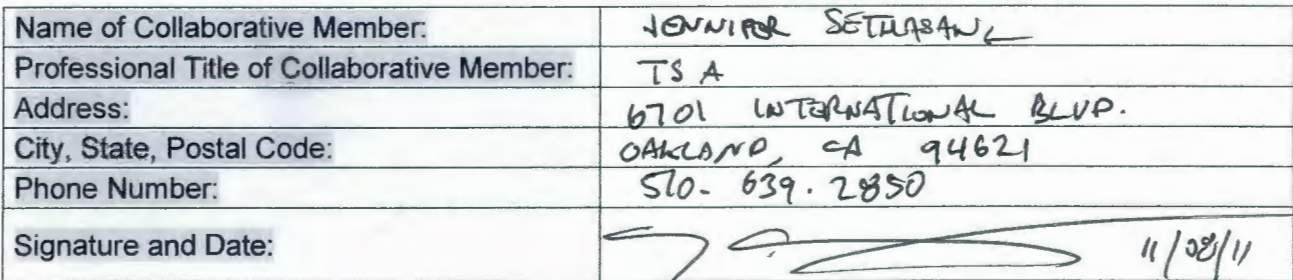 Name of Collaborative Member: JENNIFER SETHASANG
Professional Title of Collaborative Member: TSA
Address: 6701 INTERNATIONAL BLVD.
City, State, Postal Code: OAKLAND, CA 94621
Phone Number: 510-639.2850
Signature and Date: 11/28/11